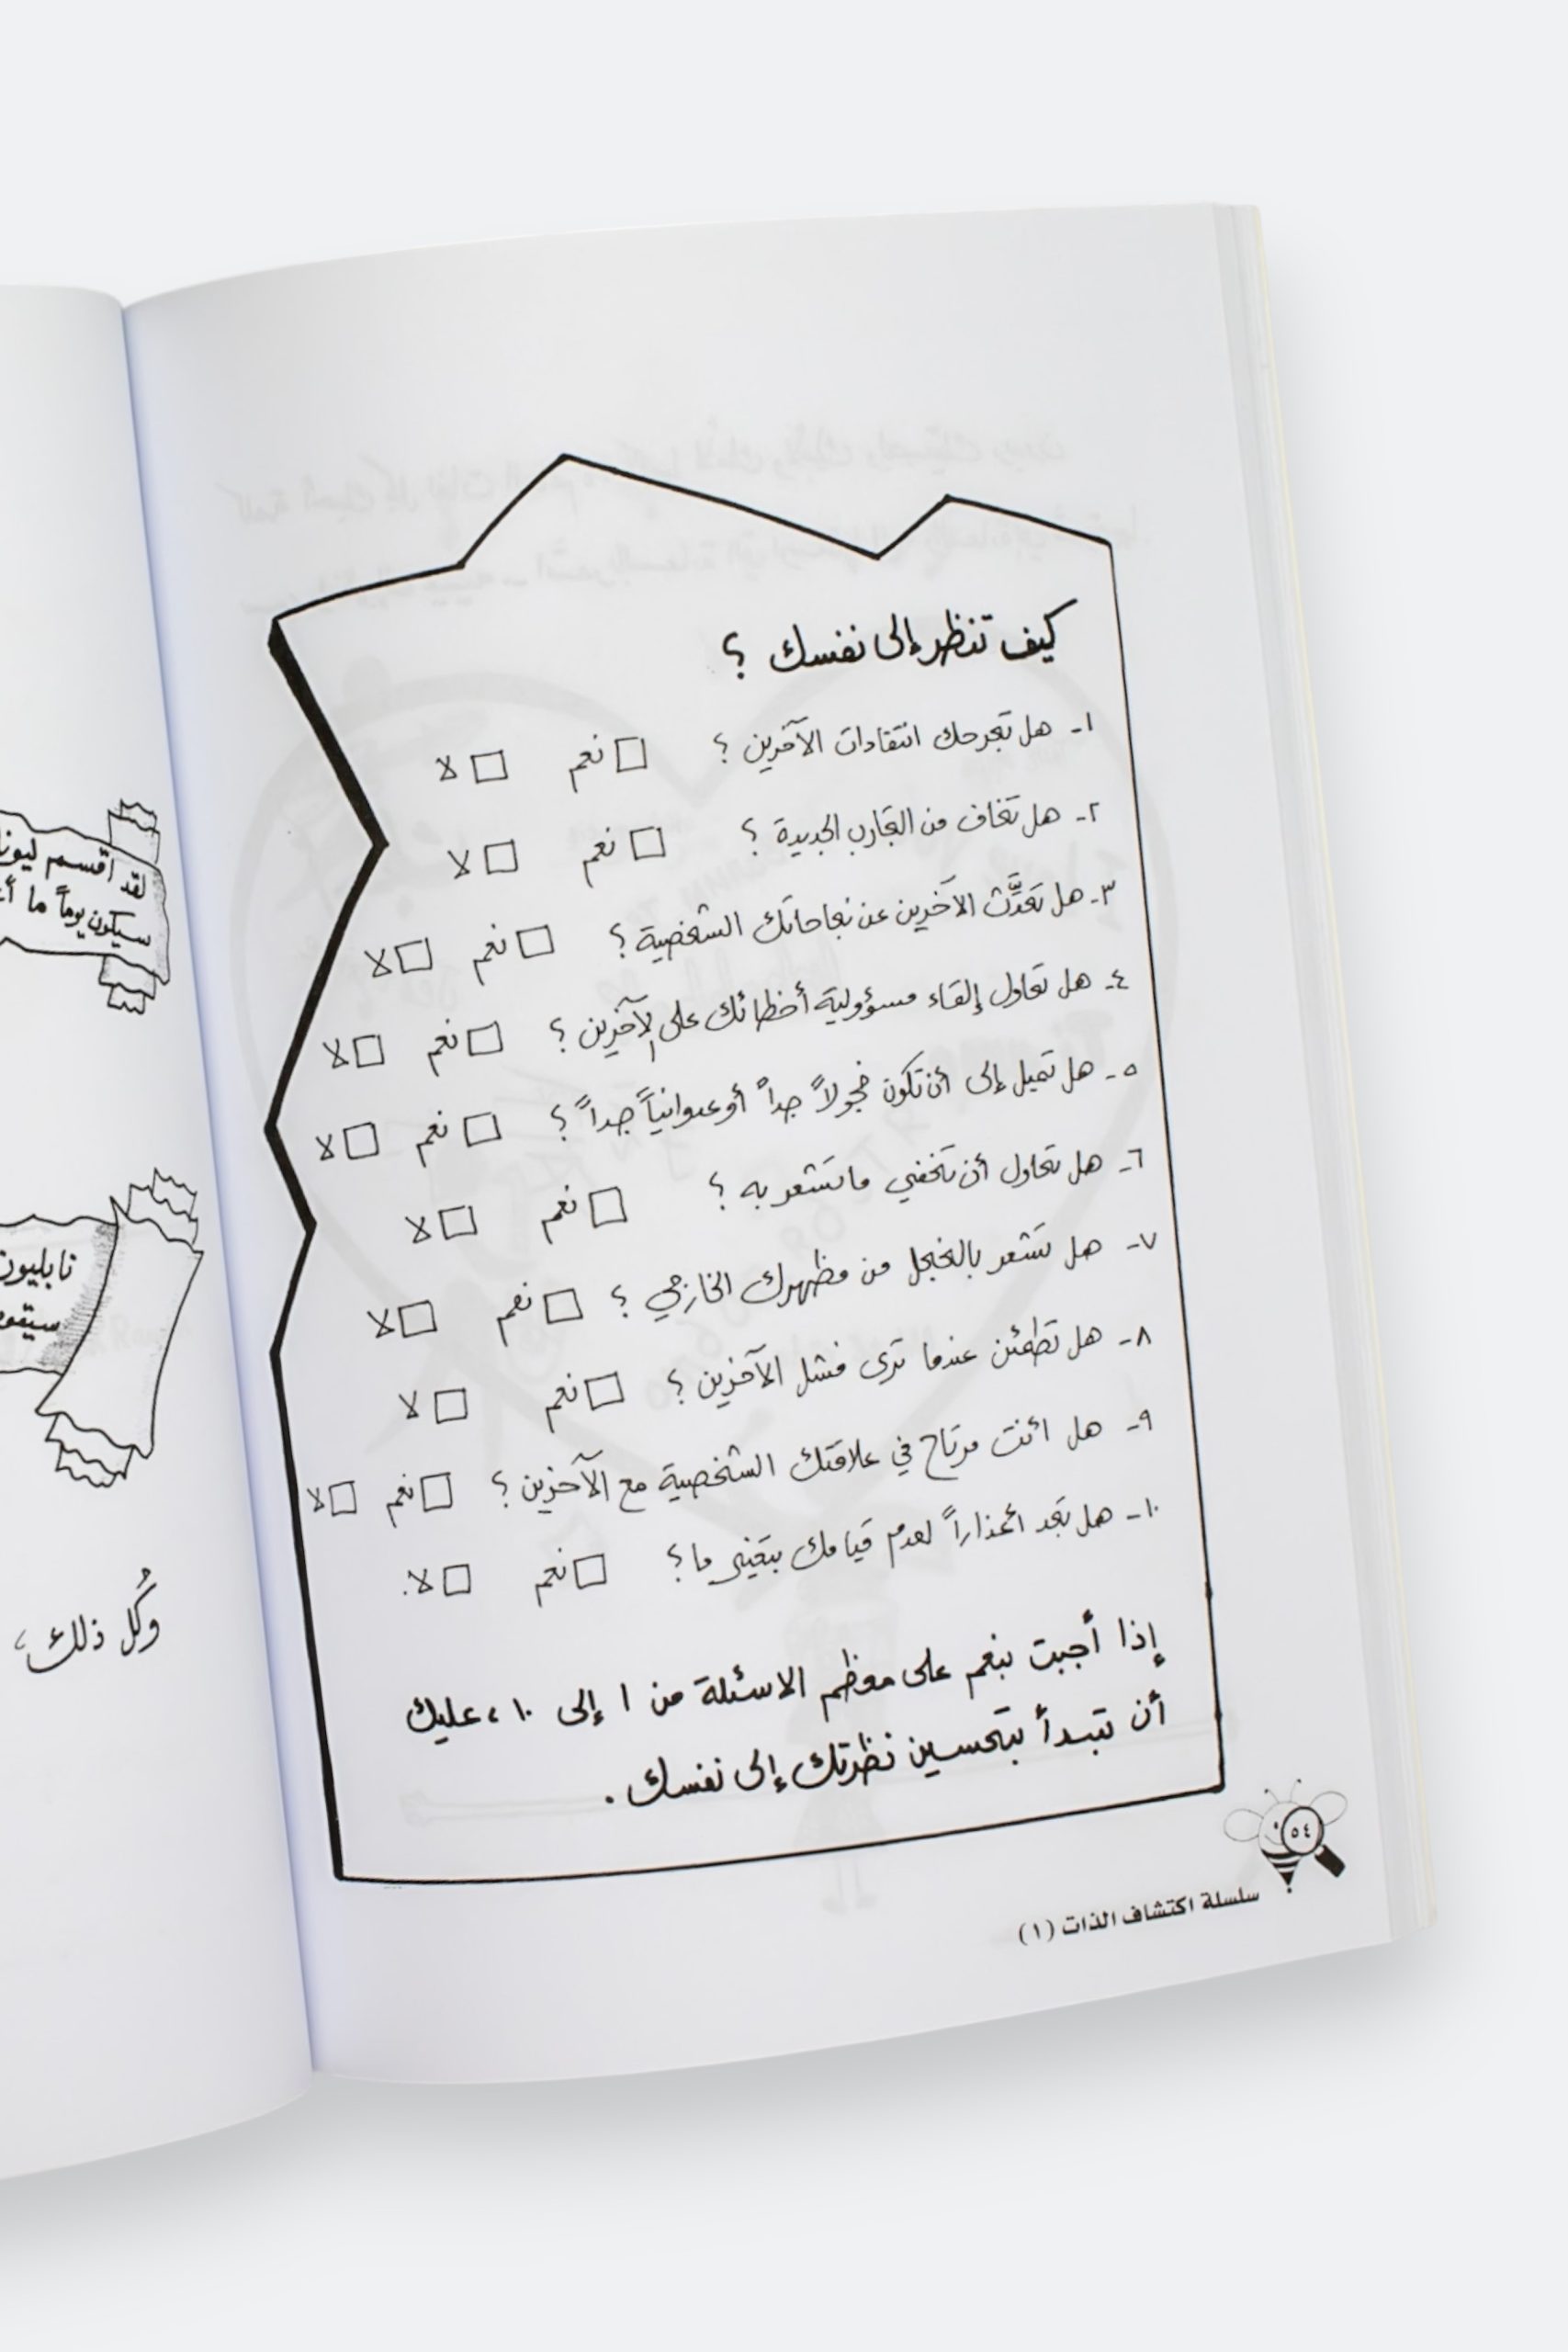 كيف تنظر إلى نفسك ؟
١- هل تجرحك انتقادات الآخرين ؟ □ نعم □ لا
٢- هل تخاف من التجارب الجديدة ؟ □ نعم □ لا
٣- هل تحدَّث الآخرين عن نجاحاتك الشخصية ؟ □ نعم □ لا
٤- هل تحاول إلقاء مسؤولية أخطائك على الآخرين ؟ □ نعم □ لا
٥- هل تميل إلى أن تكون خجولاً جداً أو عدوانياً جداً ؟ □ نعم □ لا
٦- هل تحاول أن تخفي ما تشعر به ؟ □ نعم □ لا
٧- هل تشعر بالخجل من مظهرك الخارجي ؟ □ نعم □ لا
٨- هل تطمئن عندما ترى فشل الآخرين ؟ □ نعم □ لا
٩- هل أنت مرتاح في علاقتك الشخصية مع الآخرين ؟ □ نعم □ لا
١٠- هل تجد أعذاراً لعدم قيامك بتغيير ما ؟ □ نعم □ لا.
إذا أجبت بنعم على معظم الاسئلة من ١ إلى ١٠، عليك
أن تبدأ بتحسين نظرتك إلى نفسك .
٥٤
سلسلة اكتشاف الذات (١)
لقد أقسم
سيكون يوماً ما
نابليون
وكُل ذلك،